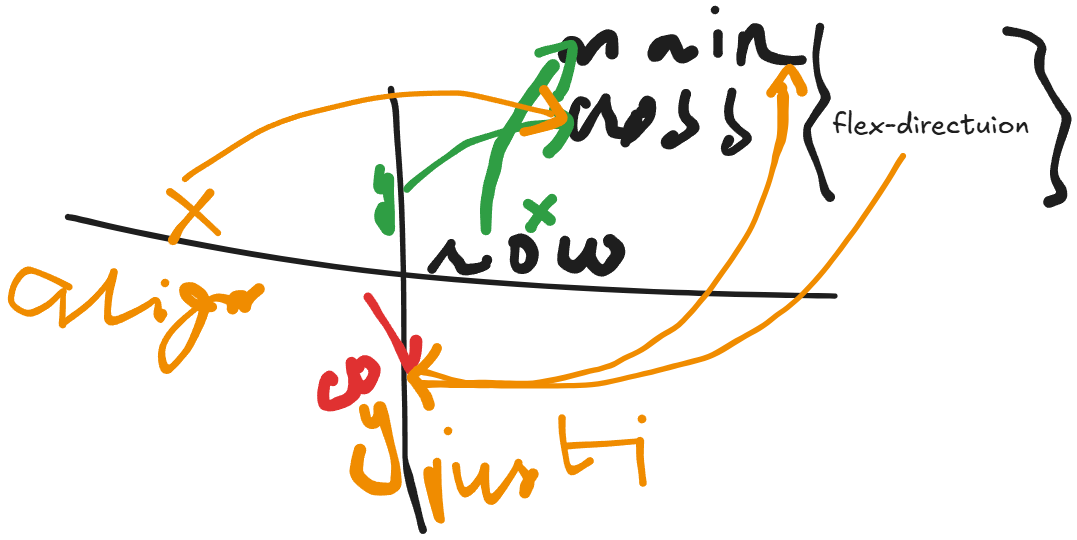 main
cross
{ flex-directuion }
y
x
x
row
align
co
y
justi